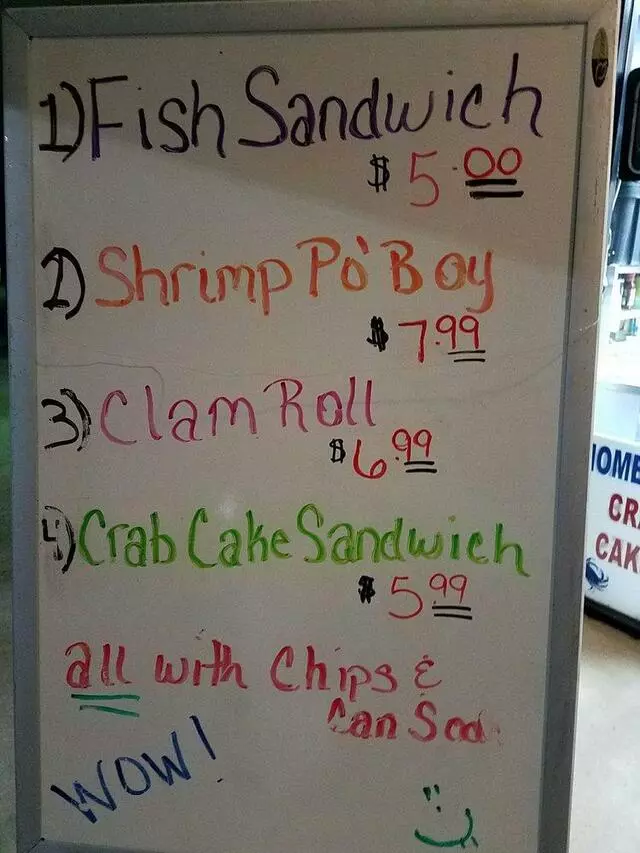 1) Fish Sandwich
$5.00
2) Shrimp Po'Boy
$7.99
3) Clam Roll
$6.99
4) Crab Cake Sandwich
$5.99
all with Chips &
Can Sod
WOW!
OME
CR
CAK